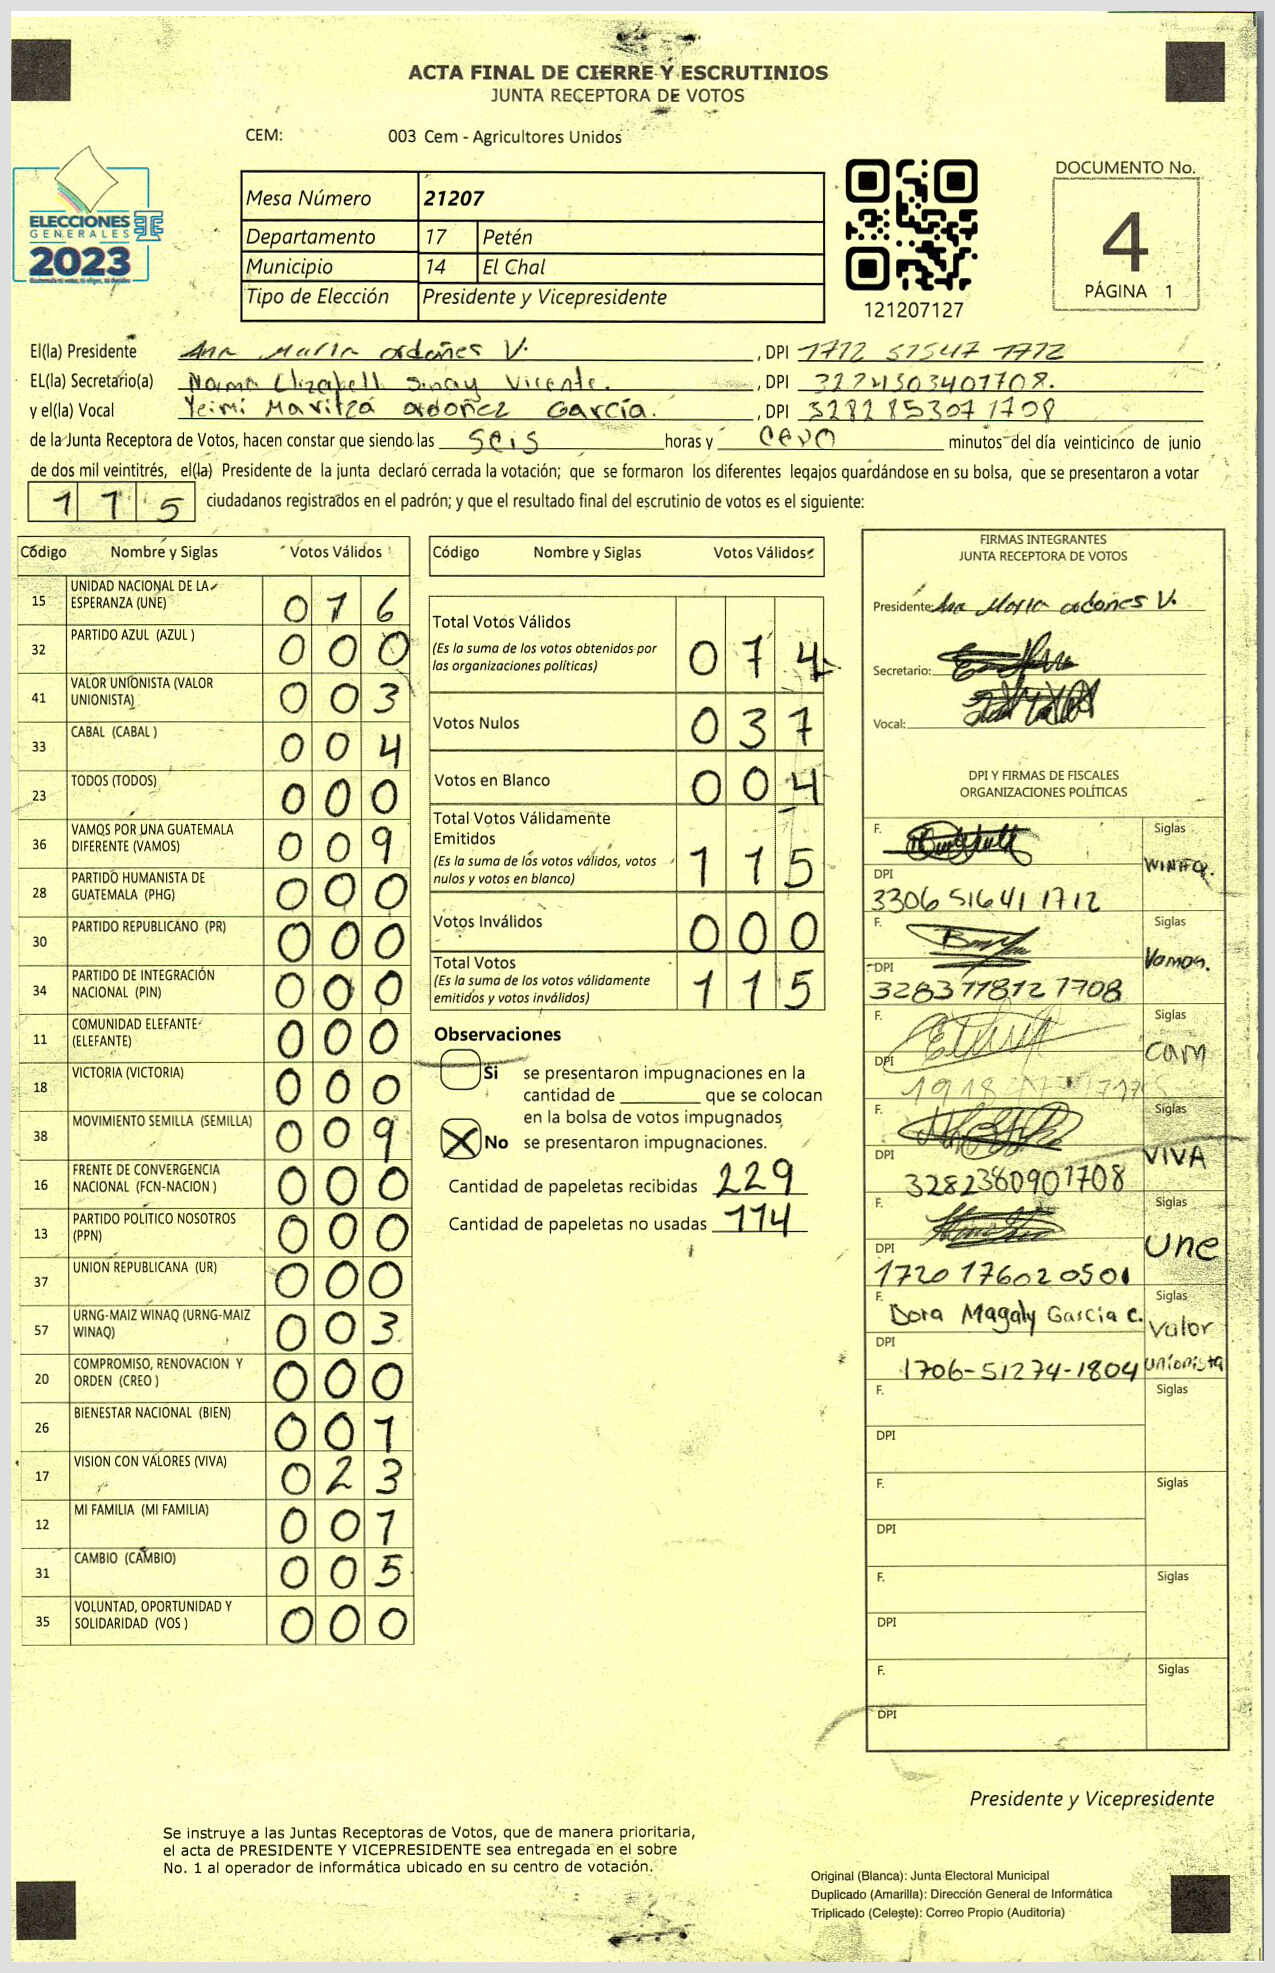 ACTA FINAL DE CIERRE Y ESCRUTINIOS
JUNTA RECEPTORA DE VOTOS
CEM: 003 Cem - Agricultores Unidos
ELECCIONES
GENERALES
2023
Mesa Número 21207
Departamento 17 Petén
Municipio 14 El Chal
Tipo de Elección Presidente y Vicepresidente
121207127
DOCUMENTO No.
4
PÁGINA 1
El(la) Presidente Ana María ordoñes V. , DPI 1772 51547 1712
EL(la) Secretario(a) Norma Elizabeth Sinay Vicente. , DPI 3224303401708.
y el(la) Vocal Yeimi Maritza ordoñez García. , DPI 3282853071708
de la Junta Receptora de Votos, hacen constar que siendo las seis horas y cero minutos del día veinticinco de junio
de dos mil veintitrés, el(la) Presidente de la junta declaró cerrada la votación; que se formaron los diferentes legajos guardándose en su bolsa, que se presentaron a votar
115 ciudadanos registrados en el padrón; y que el resultado final del escrutinio de votos es el siguiente:
Código Nombre y Siglas Votos Válidos
15 UNIDAD NACIONAL DE LA ESPERANZA (UNE) 0 1 6
32 PARTIDO AZUL (AZUL ) 0 0 0
41 VALOR UNIONISTA (VALOR UNIONISTA) 0 0 3
33 CABAL (CABAL ) 0 0 4
23 TODOS (TODOS) 0 0 0
36 VAMOS POR UNA GUATEMALA DIFERENTE (VAMOS) 0 0 9
28 PARTIDO HUMANISTA DE GUATEMALA (PHG) 0 0 0
30 PARTIDO REPUBLICANO (PR) 0 0 0
34 PARTIDO DE INTEGRACIÓN NACIONAL (PIN) 0 0 0
11 COMUNIDAD ELEFANTE (ELEFANTE) 0 0 0
18 VICTORIA (VICTORIA) 0 0 0
38 MOVIMIENTO SEMILLA (SEMILLA) 0 0 9
16 FRENTE DE CONVERGENCIA NACIONAL (FCN-NACION ) 0 0 0
13 PARTIDO POLITICO NOSOTROS (PPN) 0 0 0
37 UNION REPUBLICANA (UR) 0 0 0
57 URNG-MAIZ WINAQ (URNG-MAIZ WINAQ) 0 0 3
20 COMPROMISO, RENOVACION Y ORDEN (CREO ) 0 0 0
26 BIENESTAR NACIONAL (BIEN) 0 0 1
17 VISION CON VALORES (VIVA) 0 2 3
12 MI FAMILIA (MI FAMILIA) 0 0 1
31 CAMBIO (CAMBIO) 0 0 5
35 VOLUNTAD, OPORTUNIDAD Y SOLIDARIDAD (VOS ) 0 0 0
Código Nombre y Siglas Votos Válidos
Total Votos Válidos
(Es la suma de los votos obtenidos por
las organizaciones políticas) 0 7 4
Votos Nulos 0 3 7
Votos en Blanco 0 0 4
Total Votos Válidamente
Emitidos
(Es la suma de los votos válidos, votos
nulos y votos en blanco) 1 1 5
Votos Inválidos 0 0 0
Total Votos
(Es la suma de los votos válidamente
emitidos y votos inválidos) 1 1 5
Observaciones
Si se presentaron impugnaciones en la
cantidad de ________ que se colocan
en la bolsa de votos impugnados
No se presentaron impugnaciones.
Cantidad de papeletas recibidas 229
Cantidad de papeletas no usadas 114
FIRMAS INTEGRANTES
JUNTA RECEPTORA DE VOTOS
Presidente: Ana María ordoñes V.
Secretario:
Vocal:
DPI Y FIRMAS DE FISCALES
ORGANIZACIONES POLÍTICAS
F. Siglas WINAQ.
DPI 3306 51641 1712
F. Siglas Vamos.
DPI 3283778121708
F. Siglas cam
DPI
F. Siglas VIVA
DPI 3282380901708
F. Siglas une
DPI 1720 176020501
F. Dora Magaly García C. Siglas Valor unionista
DPI 1706-51274-1804
F. Siglas
DPI
F. Siglas
DPI
F. Siglas
DPI
F. Siglas
DPI
Presidente y Vicepresidente
Se instruye a las Juntas Receptoras de Votos, que de manera prioritaria,
el acta de PRESIDENTE Y VICEPRESIDENTE sea entregada en el sobre
No. 1 al operador de informática ubicado en su centro de votación.
Original (Blanca): Junta Electoral Municipal
Duplicado (Amarilla): Dirección General de Informática
Triplicado (Celeste): Correo Propio (Auditoría)